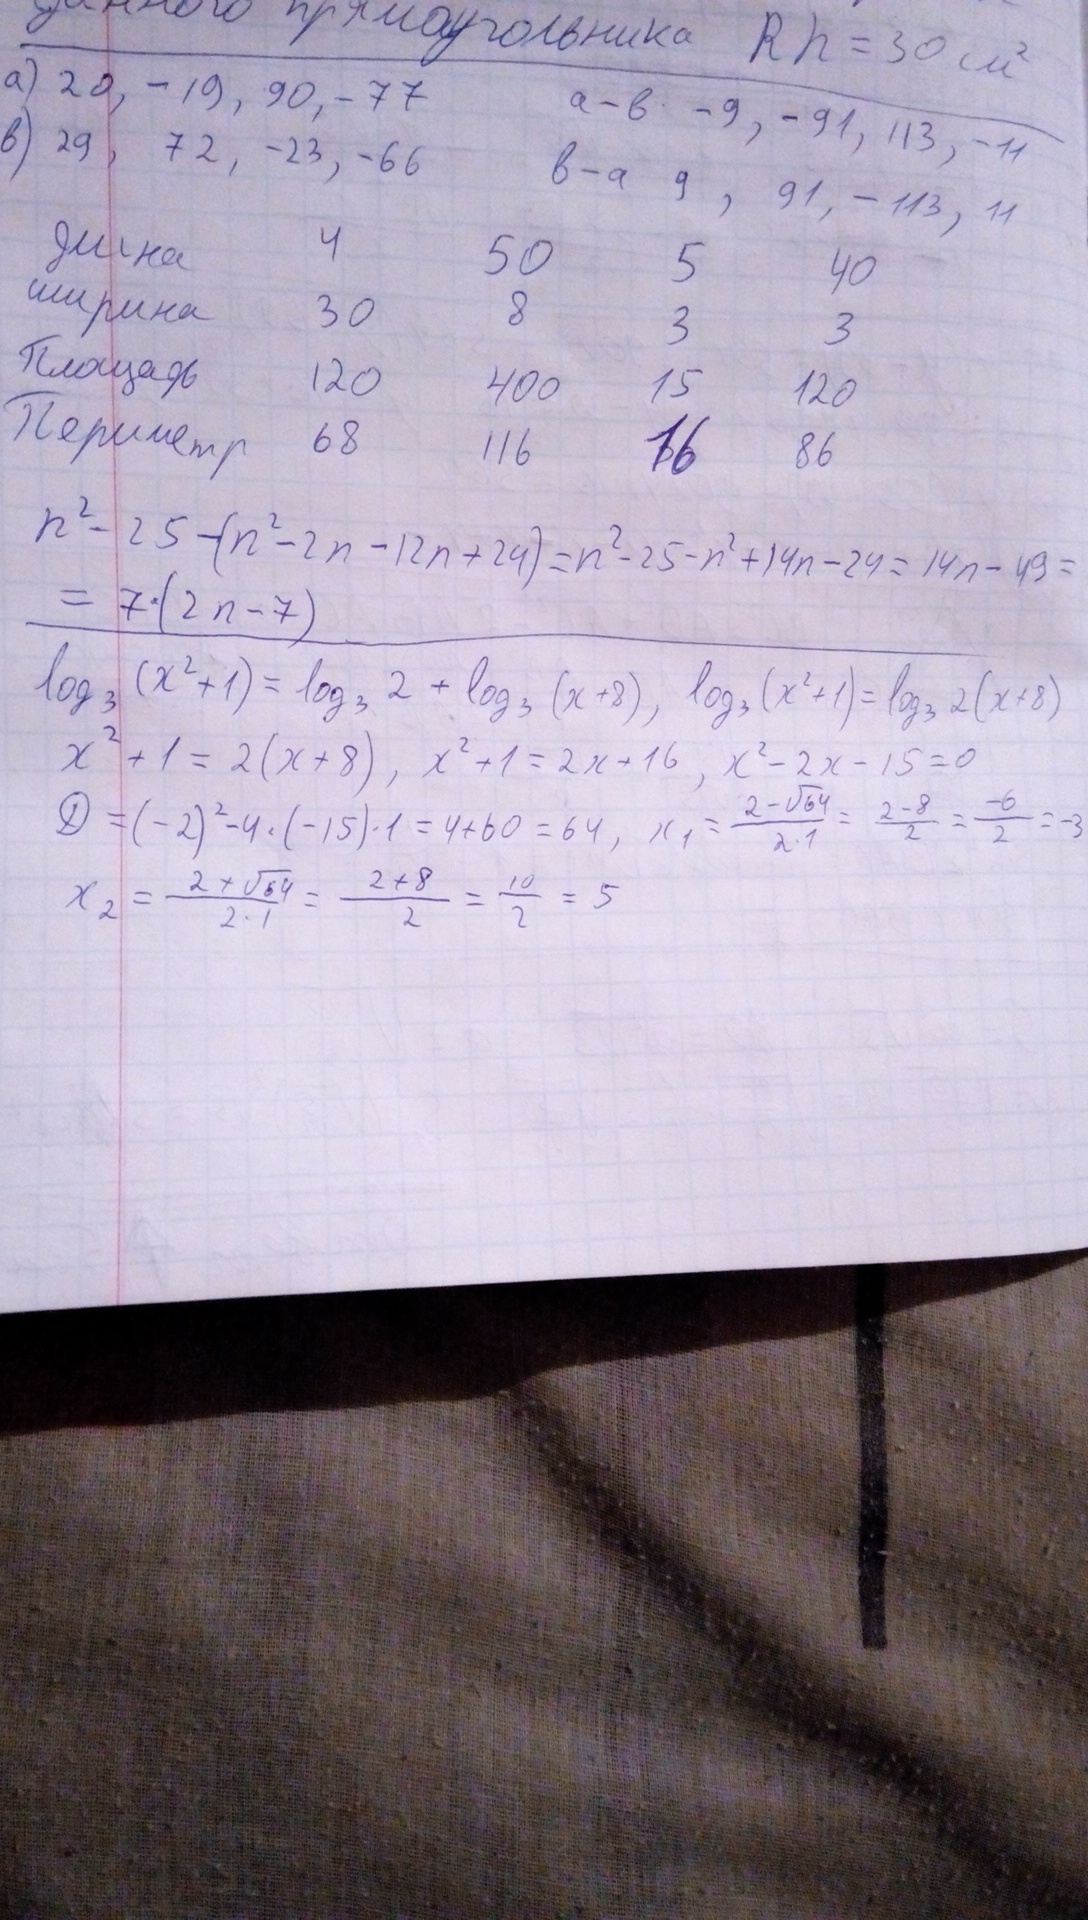 данного прямоугольника Rh = 30 см²
а) 20, -19, 90, -77 а-в. -9, -91, 113, -11
в) 29, 72, -23, -66 в-а 9, 91, -113, 11
длина 4 50 5 40
ширина 30 8 3 3
Площадь 120 400 15 120
Периметр 68 116 16 86
n² - 25 - (n² - 2n - 12n + 24) = n² - 25 - n² + 14n - 24 = 14n - 49 =
= 7·(2n - 7)
log₃ (x² + 1) = log₃ 2 + log₃ (x + 8), log₃ (x² + 1) = log₃ 2(x + 8)
x² + 1 = 2(x + 8), x² + 1 = 2x + 16, x² - 2x - 15 = 0
D = (-2)² - 4·(-15)·1 = 4 + 60 = 64, x₁ = (2 - √64)/(2·1) = (2 - 8)/2 = -6/2 = -3
x₂ = (2 + √64)/(2·1) = (2 + 8)/2 = 10/2 = 5